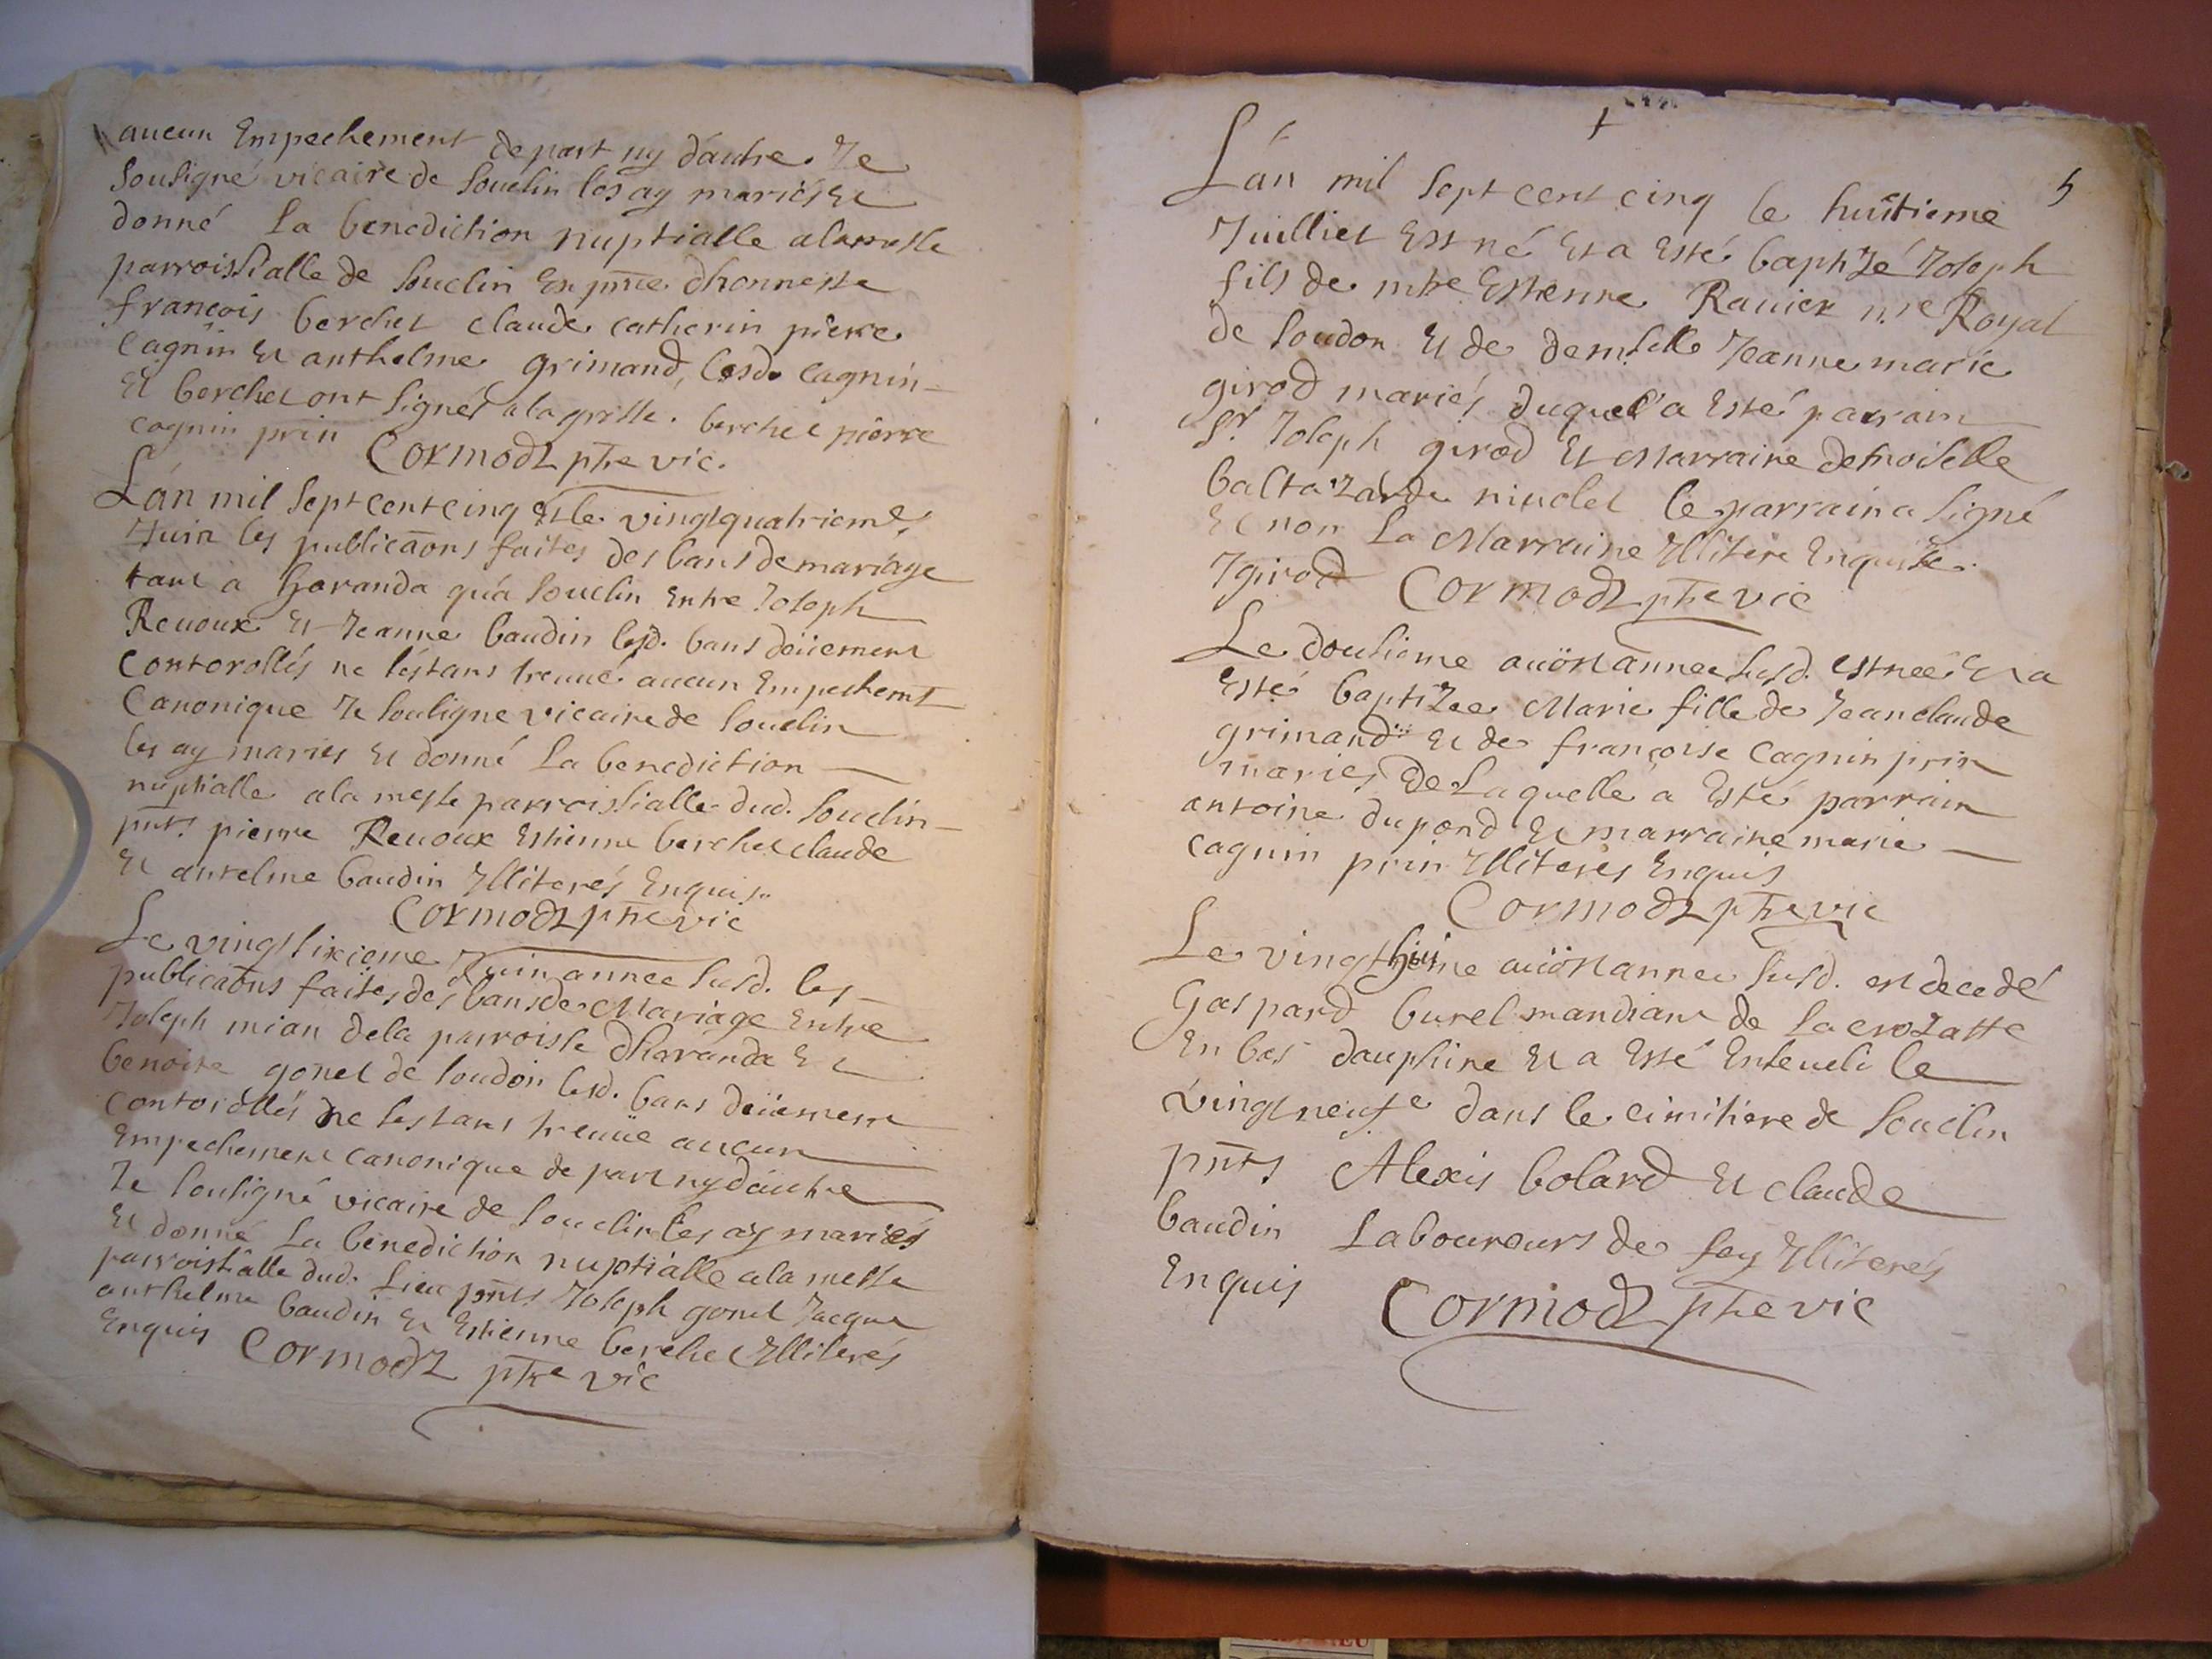 aucun Empechement de part ny d'autre Je
Sousigné vicaire de Souclin les ay mariés et
donné La benediction nuptialle a la messe
parroissialle de Souclin En pnce d'honneste
françois berchet claude catherin pierre
Cagnin Et anthelme grimand, Lesd. Cagnin
Et berchet ont signés a la grosse. berchet pierre
cagnin prin Cormodz ptre vic.
L'an mil Sept cent cinq et le vingtquatrieme
Juin les publicaons faites des bans de mariage
tant a haranda qu'a Souclin Entre Joseph
Reuoux Et Jeanne baudin lesd. bans deüement
Contorollés ne s'estans treuué aucun Empechemt
Canonique Je Sousigne vicaire de Souclin
les ay mariés Et donné La benediction
nuptialle a la messe parroissialle dud. Souclin
pnts pierre Reuoux Estienne berchet claude
Et antelme baudin Illiterés Enquis.
Cormodz ptre vic
Le vingt sixieme Juin annee Susd. les
publicaons faites des bans de Mariage Entre
Joseph mian de la parroisse d'haranda Et
benoite gonet de Soudon lesd. bans deüement
Contorollés ne s'estans treuüe aucun
Empechement canonique de part ny d'autre
Je Sousigné vicaire de Souclin les ay mariés
Et donné La benediction nuptialle a la messe
parroissialle dud. Lieu pnts Joseph gonet Jacque
anthelme baudin Et Estienne berchet Illiterés
Enquis Cormodz ptre vic
5
L'an mil Sept cent cinq le huitieme
Juilliet Est né Et a Esté baptizé Joseph
fils de mtre Estienne Rauier nre Royal
de Soudon Et de demselle Jeanne marie
girod mariés duquel a Esté parrain
Sr Joseph girod Et Marraine demoiselle
baltazarde niuolet le parrain a signé
Et non La Marraine Illitere Enquise.
J girod Cormodz ptre vic
Le dousieme auöst annee susd. est née Et a
Esté baptizee Marie fille de Jean claude
grimand Et de françoise Cagnin prin
mariés De Laquelle a Esté parrain
antoine dupond Et marraine marie
cagnin prin Illiteres Enquis
Cormodz ptre vic
Le vingt huitieme auöst annee susd. est decedé
Gaspard burel mandiant de La crozatte
En bas dauphine Et a Esté Enseueli le
vingt neufe dans le cimitiere de Souclin
pnts Alexis bolard Et claude
baudin Laboureurs de fay Illiterés
Enquis Cormodz ptre vic